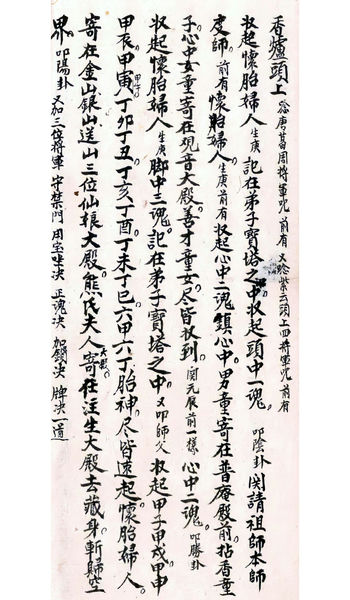 香爐頭上 唸唐葛周將軍咒 前有 又唸紫云頭上四將軍咒 前有
收起懷胎婦人 生庚 記在弟子寶塔之中。收起頭中一魂。叩陰卦 関請祖師本師
度師。前有懷胎婦人。生庚前有 收起心中二魂。鎮心中男童寄在普庵殿前。拈香童
子。心中女童寄在观音大殿。善才童女。尽皆收到。関元辰前一樣。心中二魂。叩勝卦
收起懷胎婦人 生庚 脚中三魂。記在弟子寶塔之中。又叩師父 收起甲子甲戌甲申
甲辰甲寅。甲子 丁卯丁丑。丁亥丁酉。丁未丁巳。六甲六丁。胎神。尽皆速起。懷胎婦人。
寄在金山銀山送山三位仙娘大殿。熊氏夫人寄在注生大殿去藏身。斬歸空 大殿
界。叩陽卦 又加三位將軍 守禁門 用宝坐决 正魂决 加鎖决 牌决一道